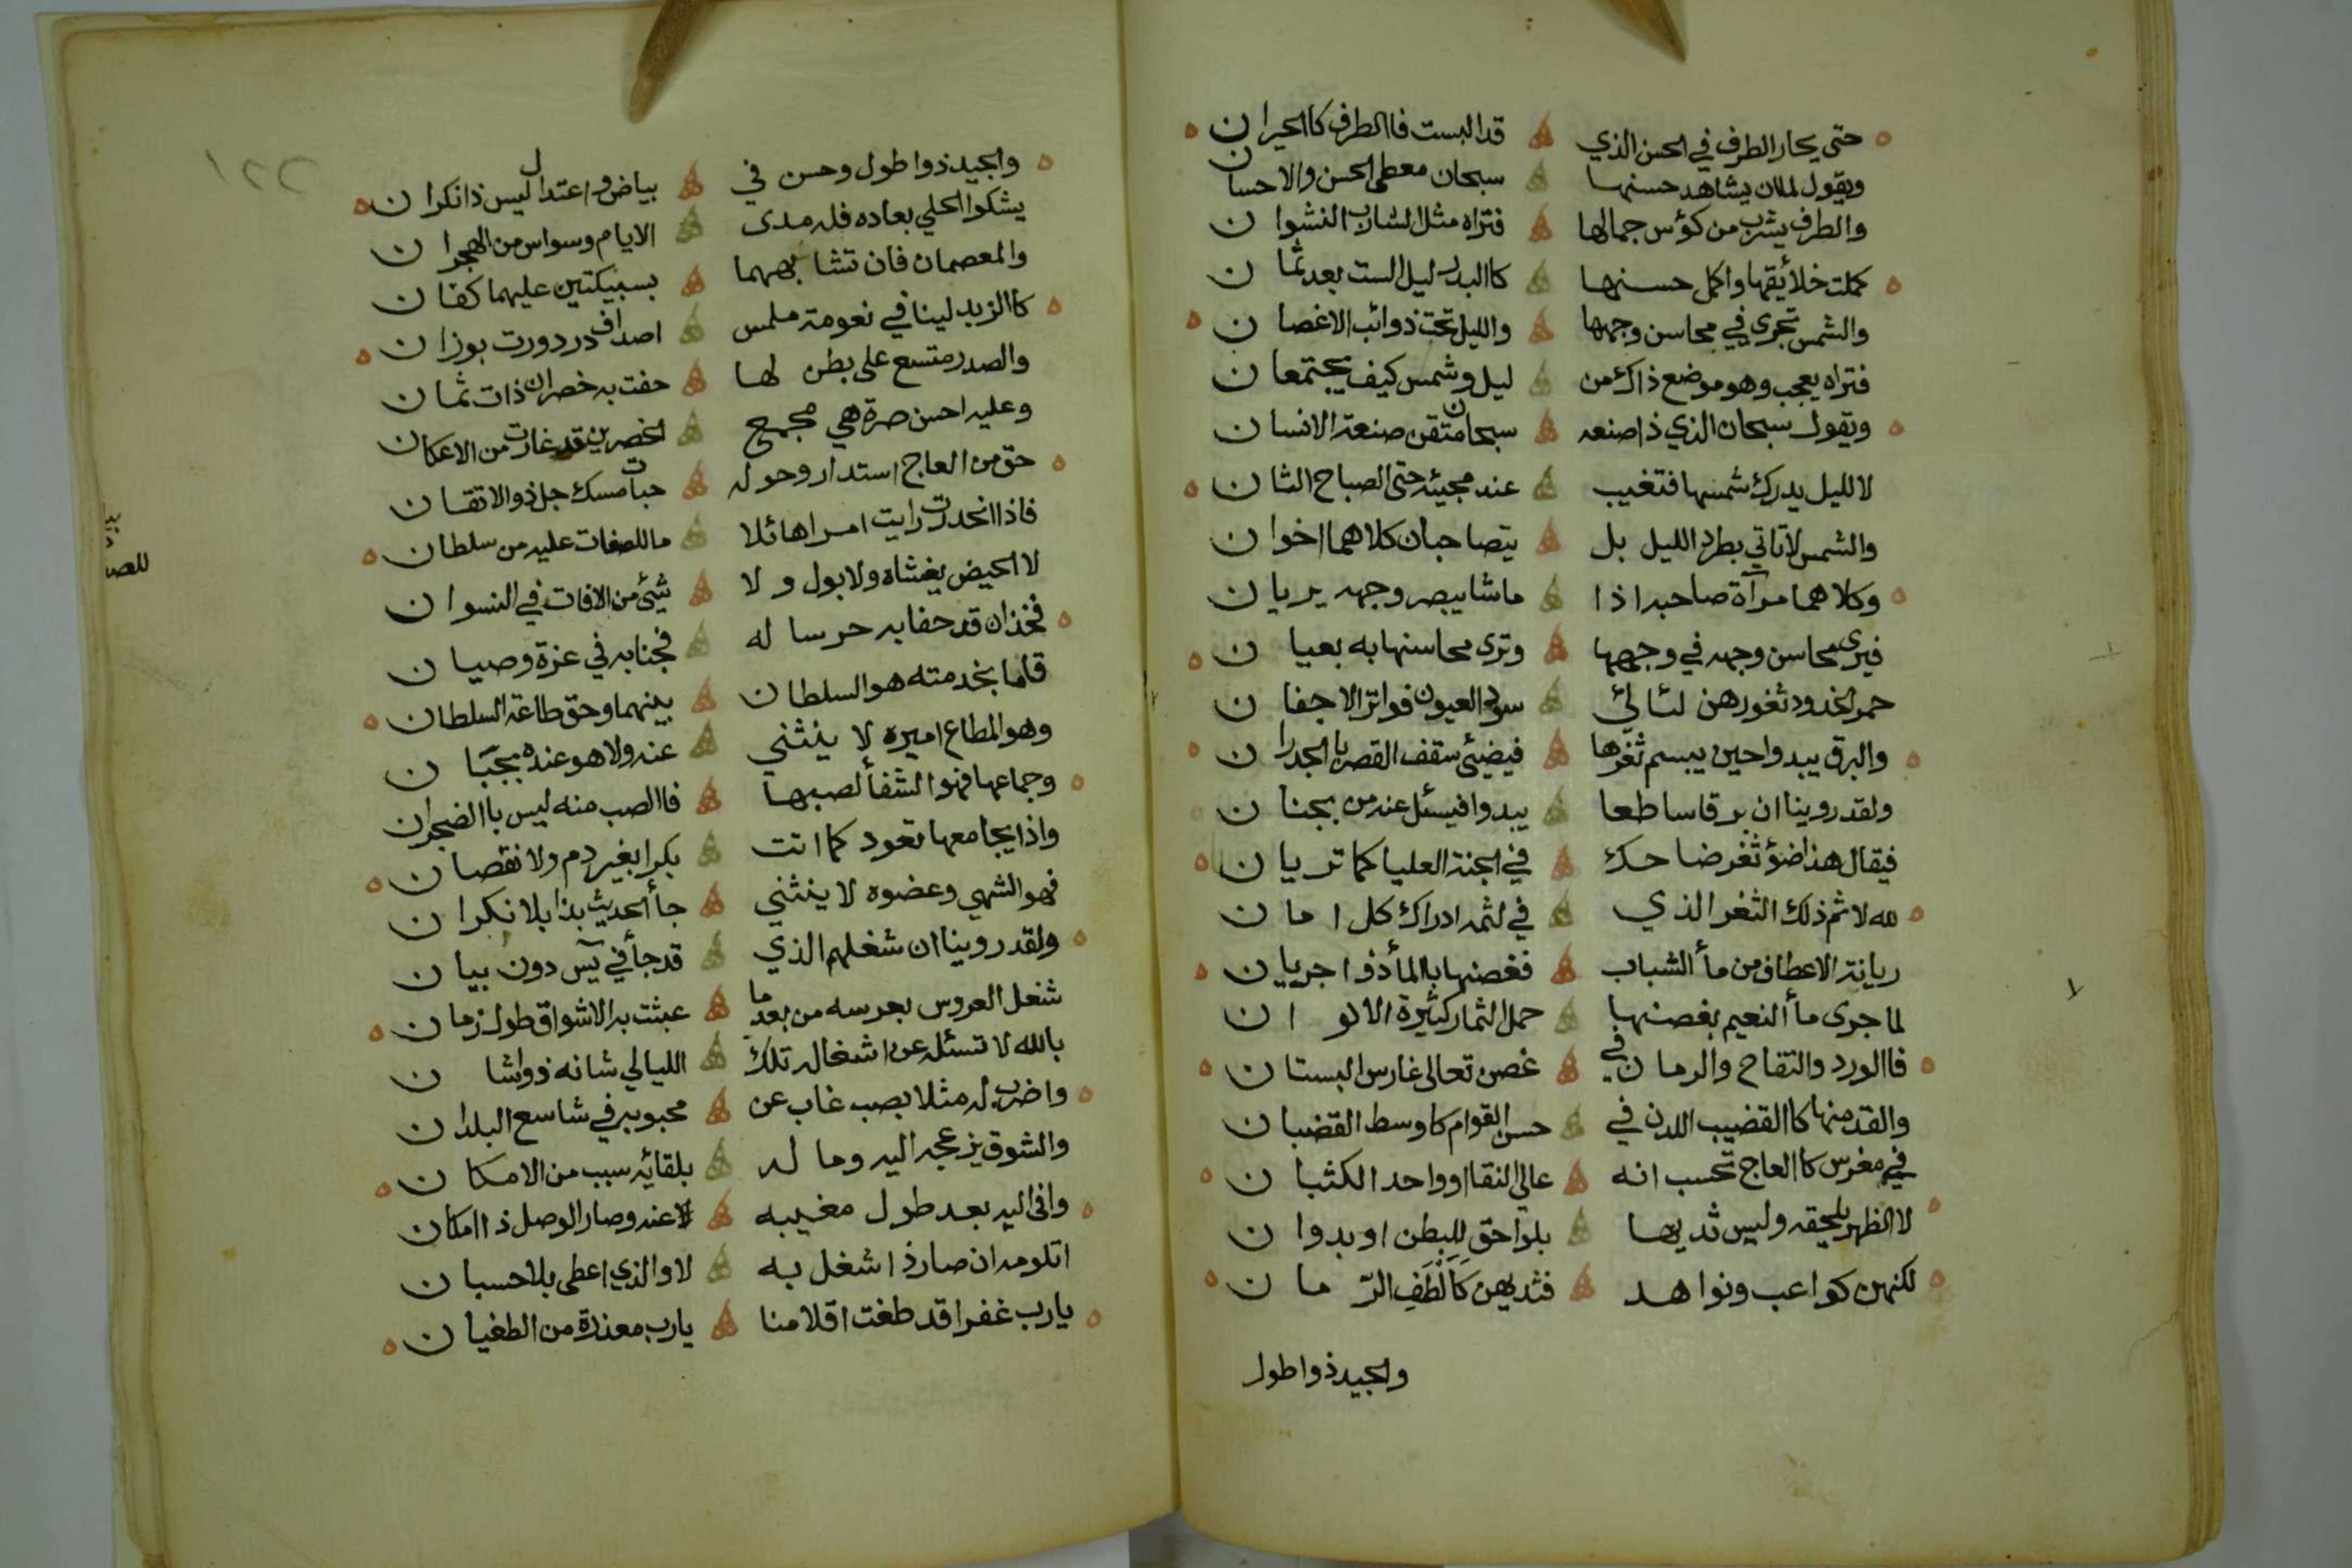 حتى يحار الطرف في الحسن الذي قد البست فاالطرف كاالحيران
ويقول لمان يشاهد حسنها سبحان معطى الحسن والاحسان
والطرف يشرب من كؤس جمالها فتراه مثل الشارب النشوان
كملت خلائقها واكمل حسنها كاالبدر ليل الست بعد ثمان
والشمس تجرى في محاسن وجهها والليل تحت ذوائب الاغصان
فتراه يعجب وهو موضع ذاك من ليل وشمس كيف يجتمعان
ويقول سبحان الذي ذا صنعه سبحان متقن صنعة الانسان
لا لليل يدرك شمسها فتغيب عند مجيئه حتى الصباح الثان
والشمس لا تاتي بطرد الليل بل يتصاحبان كلاهما اخوان
وكلاهما مرآة صاحبه اذا ما شا يبصر وجهه يريان
فيرى محاسن وجهه في وجهها وترى محاسنها به بعيان
حمر الخدود ثغورهن لئالئ سود العيون فواتر الاجفان
والبرق يبدوا حين يبسم ثغرها فيضيئ سقف القصر باالجدران
ولقد روينا ان برقا ساطعا يبدوا فيسئل عنه من بجنان
فيقال هذا ضؤ ثغر ضاحك في الجنة العليا كما تريان
لله لاثم ذلك الثغر الذي في لثمه ادراك كل امان
ريانة الاعطاف من مأ الشباب فغصنها باالمأ ذوا جريان
لما جرى مأ النعيم بغصنها حمل الثمار كثيرة الالوان
فاالورد والتفاح والرمان في غصن تعالى غارس البستان
والقد منها كاالقضيب اللدن في حسن القوام كاوسط القضبان
في مغرس كاالعاج تحسب انه عالي النقا اوواحد الكثبان
لا الظهر يلحقه وليس ثديها بلواحق للبطن اوبدوان
لكنهن كواعب ونواهد فثديهن كَاَلْطَفِ الرّمان
والجيد ذوا طول
والجيد ذوا طول وحسن في بياض و اعتدال ليس ذا نكران
يشكوا الحلي بعاده فله مدى الايام وسواس من الهجران
والمعصمان فان تشا بههما بسبيكتين عليهما كفان
كاالزبد لينا في نعومة ملمس اصداف در دورت بوزان
والصدر متسع على بطن لها حفت به خصران ذات ثمان
وعليه احسن صرة هي مجمع الخصرين قد غارت من الاعكان
حق من العاج استدار وحوله حبات مسك جل ذو الاتقان
فاذا انحدرت رايت امرا هائلا ما للصفات عليه من سلطان
لا الحيض يغشاه ولا بول ولا شيئ من الافات في النسوان
فخذان قد حفا به حرسا له فجنابه في عزة وصيان
قاما بخدمته هو السلطان بينهما وحق طاعة السلطان
وهو المطاع اميره لا ينثني عنه ولا هو عنده بجبان
وجماعها فهو الشفأ لصبها فاالصب منه ليس باالضجران
واذا يجامعها تعود كما اتت بكرا بغير دم ولا نقصان
فهو الشهي وعضوه لا ينثني جأ الحديث بذا بلا نكران
ولقد روينا ان شغلهم الذي قد جأ في يٓس دون بيان
شغل العروس بعرسه من بعد ما عبثت به الاشواق طول زمان
بالله لا تسئله عن اشغاله تلك الليالي شانه ذواشان
واضرب له مثلا بصب غاب عن محبوبه في شاسع البلدان
والشوق يزعجه اليه وماله بلقائه سبب من الامكان
وافى اليه بعد طول مغيبه عنه وصار الوصل ذا امكان
اتلومه ان صار ذا شغل به لا والذي اعطى بلا حسبان
يارب غفرا قد طغت اقلامنا يارب معذرة من الطغيان
١٢٢